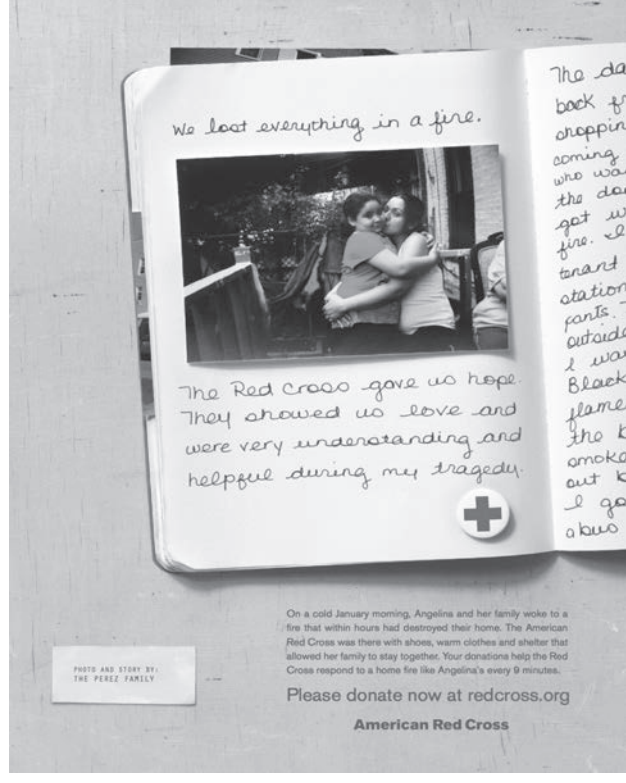 We lost everything in a fire.
The Red Cross gave us hope.
They showed us love and
were very understanding and
helpful during my tragedy.
The da
back fr
shoppin
coming
who wa
the da
got w
fire. I
tenant
station
pants.
outside
I wa
Black
flame
the b
smoke
out b
I go
abus
PHOTO AND STORY BY:
THE PEREZ FAMILY
On a cold January morning, Angelina and her family woke to a
fire that within hours had destroyed their home. The American
Red Cross was there with shoes, warm clothes and shelter that
allowed her family to stay together. Your donations help the Red
Cross respond to a home fire like Angelina's every 9 minutes.
Please donate now at redcross.org
American Red Cross